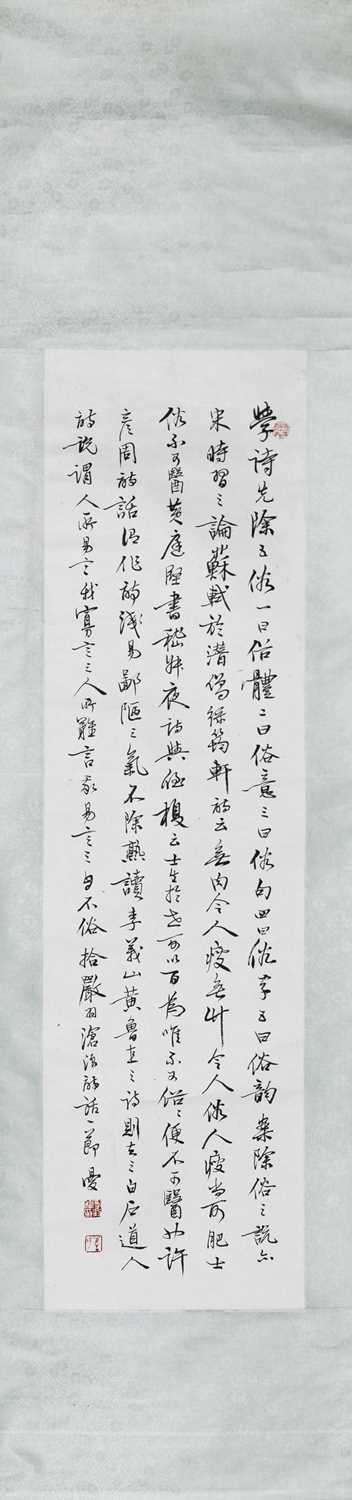 學诗先除五俗一曰俗體二曰俗意三曰俗句四曰俗字五曰俗韵案除俗之说亦
宋時習之論蘇軾於潛僧綠筠軒诗云無肉令人瘦無竹令人俗人瘦尚可肥士
俗不可醫黄庭堅書嵇叔夜诗與侄榎云士生於世可以百為唯不可俗俗便不可醫也许
彦周诗話谓作诗浅易鄙陋之氣不除熟讀李義山黄魯直之诗则去之白石道人
诗说謂人所易言我寡言之人所難言我易言之自不俗拾嚴羽滄浪诗话一節